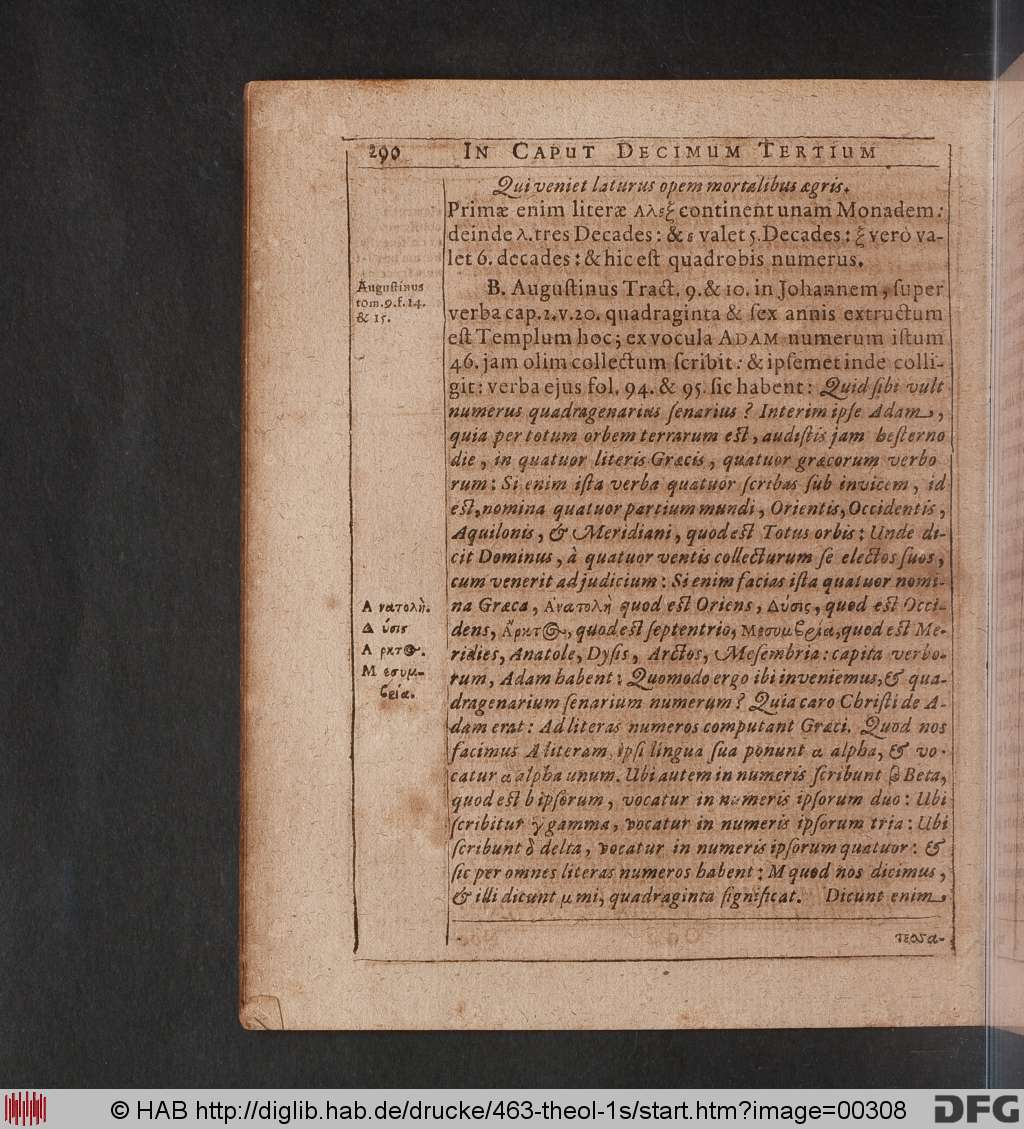 290 IN CAPUT DECIMUM TERTIUM
Qui veniet laturus opem mortalibus ægris.
Primæ enim literæ Αλεξ continent unam Monadem:
deinde λ. tres Decades: & ε valet 5. Decades: ξ verò va-
let 6. decades: & hic est quadrobis numerus.
Augustinus
tom. 9. f. 14.
& 15.
B. Augustinus Tract. 9. & 10. in Johannem, super
verba cap. 2. v. 20. quadraginta & sex annis extructum
est Templum hoc; ex vocula ADAM numerum istum
46. jam olim collectum scribit: & ipsemet inde colli-
git: verba ejus fol. 94. & 95. sic habent: Quid sibi vult
numerus quadragenarius senarius? Interim ipse Adam,
quia per totum orbem terrarum est, audistis jam hesterno
die, in quatuor literis Græcis, quatuor græcorum verbo
rum: Si enim ista verba quatuor scribas sub invicem, id
est, nomina quatuor partium mundi, Orientis, Occidentis,
Aquilonis, & Meridiani, quod est Totus orbis: Unde di-
cit Dominus, à quatuor ventis collecturum se electos suos,
cum venerit ad judicium: Si enim facias ista quatuor nomi-
na Græca, Ἀνατολὴ quod est Oriens, Δύσις, quod est Occi-
dens, Ἄρκτος, quod est septentrio, Μεσυμβρία, quod est Me-
ridies, Anatole, Dysis, Arctos, Mesembria: capita verbo-
rum, Adam habent: Quomodo ergo ibi inveniemus, & qua-
dragenarium senarium numerum? Quia caro Christi de A-
dam erat: Ad literas numeros computant Græci. Quod nos
facimus A literam, ipsi lingua sua ponunt α alpha, & vo-
catur α alpha unum. Ubi autem in numeris scribunt β Beta,
quod est b ipsorum, vocatur in numeris ipsorum duo: Ubi
scribitur γ gamma, vocatur in numeris ipsorum tria: Ubi
scribunt δ delta, vocatur in numeris ipsorum quatuor: &
sic per omnes literas numeros habent: M quod nos dicimus,
& illi dicunt μ mi, quadraginta significat. Dicunt enim
Α νατολὴ.
Δ ύσις
Α ρκτος.
Μ εσυμ-
βρία.
τεσσα-
© HAB http://diglib.hab.de/drucke/463-theol-1s/start.htm?image=00308
DFG